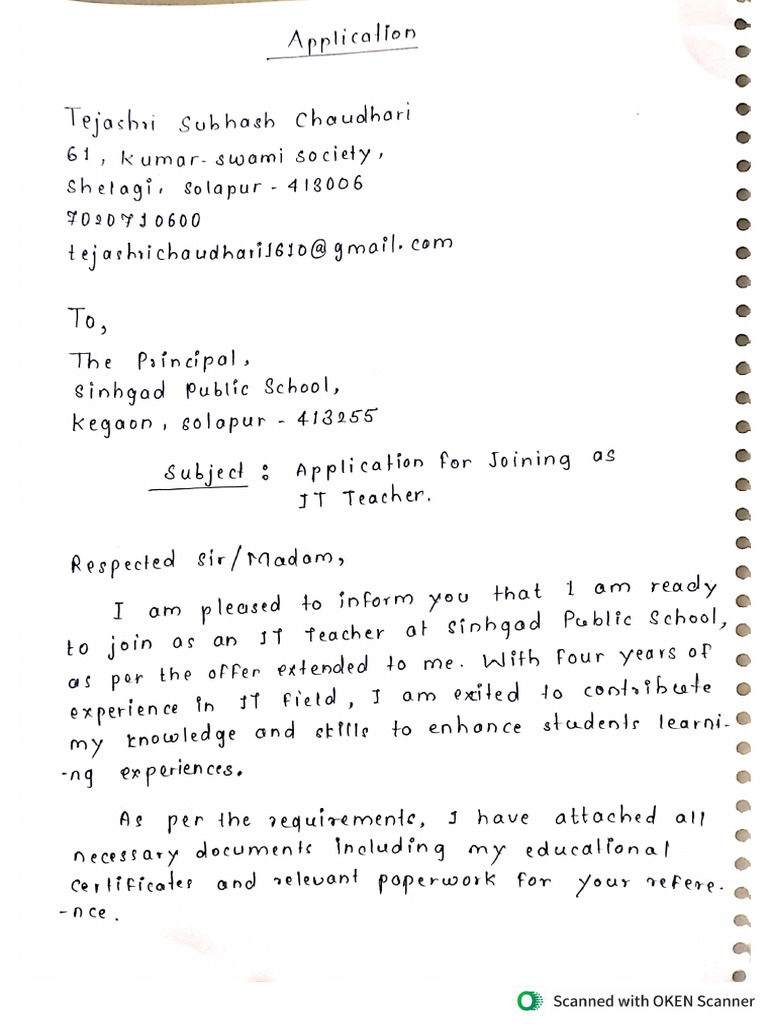 Application
Tejashri Subhash Chaudhari
61, kumar-swami society,
Shelagi, solapur - 413006
7020710600
tejashrichaudhari1610@gmail.com
To,
The Principal,
Sinhgad Public School,
Kegaon, solapur - 413255
Subject : Application for Joining as
IT Teacher.
Respected Sir/Madam,
I am pleased to inform you that I am ready
to join as an IT Teacher at Sinhgad Public School,
as per the offer extended to me. With four years of
experience in IT field, I am exited to contribute
my knowledge and skills to enhance students learni-
-ng experiences.
As per the requirements, I have attached all
necessary documents including my educational
certificates and relevant paperwork for your refere-
-nce.
Scanned with OKEN Scanner